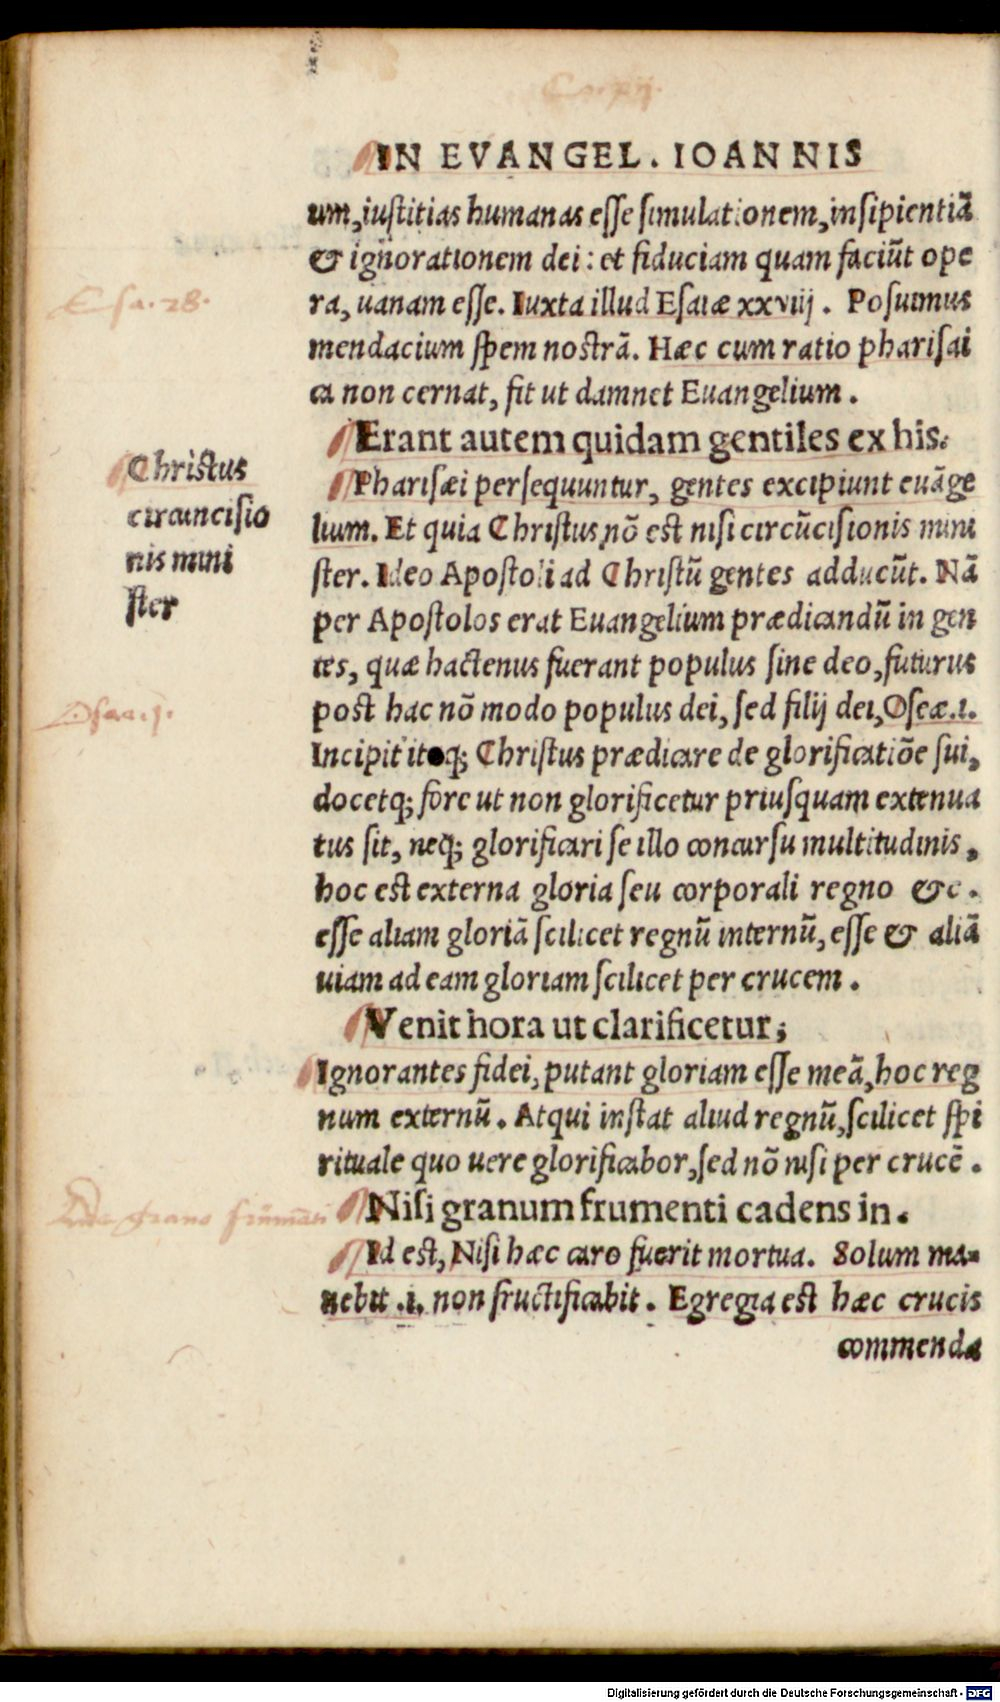 Cap. xij.
IN EVANGEL. IOANNIS
um, iustitias humanas esse simulationem, insipientiã
& ignorationem dei: et fiduciam quam faciũt ope
ra, uanam esse. Iuxta illud Esaiæ xxviij. Posuimus
mendacium spem nostrã. Hæc cum ratio pharisai
ca non cernat, fit ut damnet Euangelium.
Erant autem quidam gentiles ex his.
Pharisæi persequuntur, gentes excipiunt euãge
lium. Et quia Christus nõ est nisi circũcisionis mini
ster. Ideo Apostoli ad Christũ gentes adducũt. Nã
per Apostolos erat Euangelium prædicandũ in gen
tes, quæ hactenus fuerant populus sine deo, futurus
post hac nõ modo populus dei, sed filij dei, Oseæ.1.
Incipit itaq; Christus prædicare de glorificatiõe sui,
docetq; fore ut non glorificetur priusquam extenua
tus sit, neq; glorificari se illo concursu multitudinis,
hoc est externa gloria seu corporali regno &c.
esse aliam gloriã scilicet regnũ internũ, esse & aliã
uiam ad eam gloriam scilicet per crucem.
Venit hora ut clarificetur;
Ignorantes fidei, putant gloriam esse meã, hoc reg
num externũ. Atqui instat aliud regnũ, scilicet spi
rituale quo uere glorificabor, sed nõ nisi per crucẽ.
Nisi granum frumenti cadens in.
Id est, Nisi hæc caro fuerit mortua. Solum ma-
nebit .i. non fructificabit. Egregia est hæc crucis
commenda
Esa. 28.
Christus
circuncisio
nis mini
ster
Oseae.j.
grano frumẽti
Digitalisierung gefördert durch die Deutsche Forschungsgemeinschaft - DFG